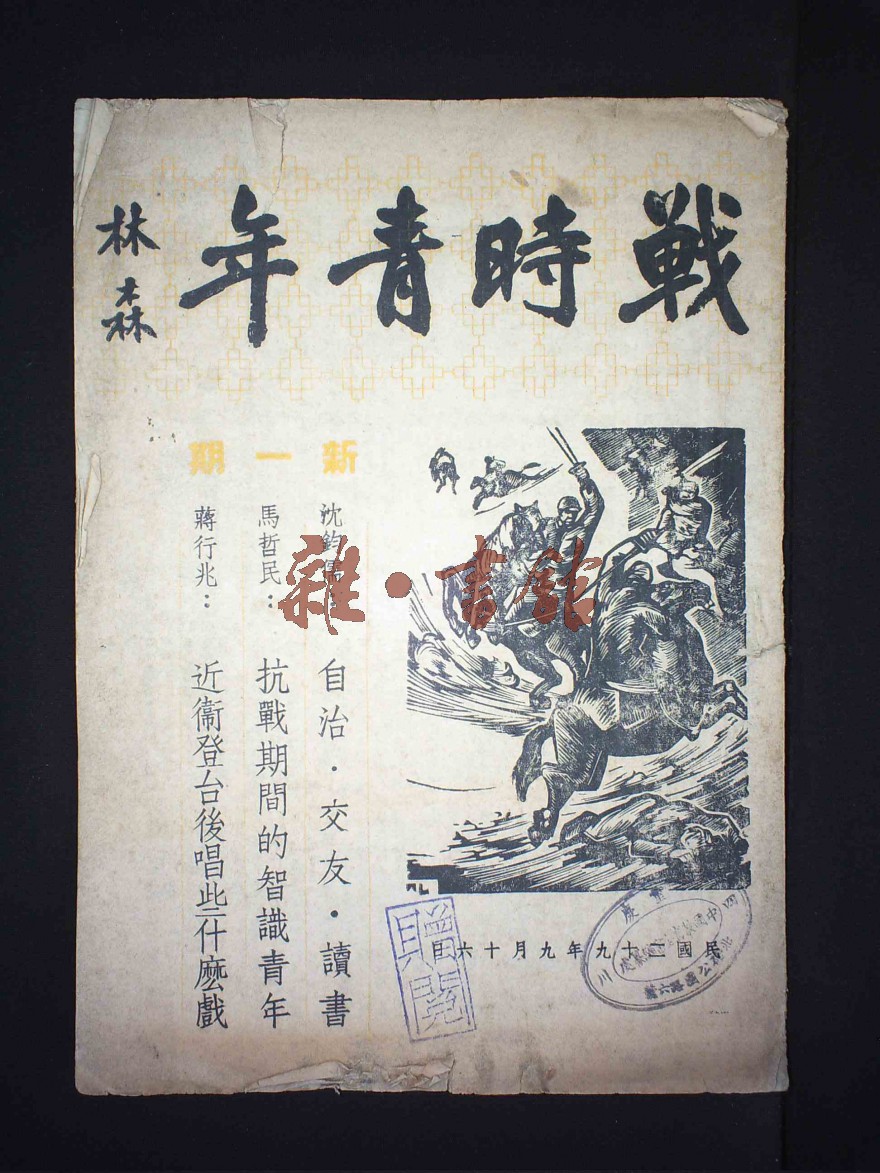 戰時青年
林森
新一期
沈鈞儒：自治·交友·讀書
馬哲民：抗戰期間的智識青年
蔣行兆：近衞登台後唱些什麼戲
民國二十九年九月十六日
贈閱
雜·書館